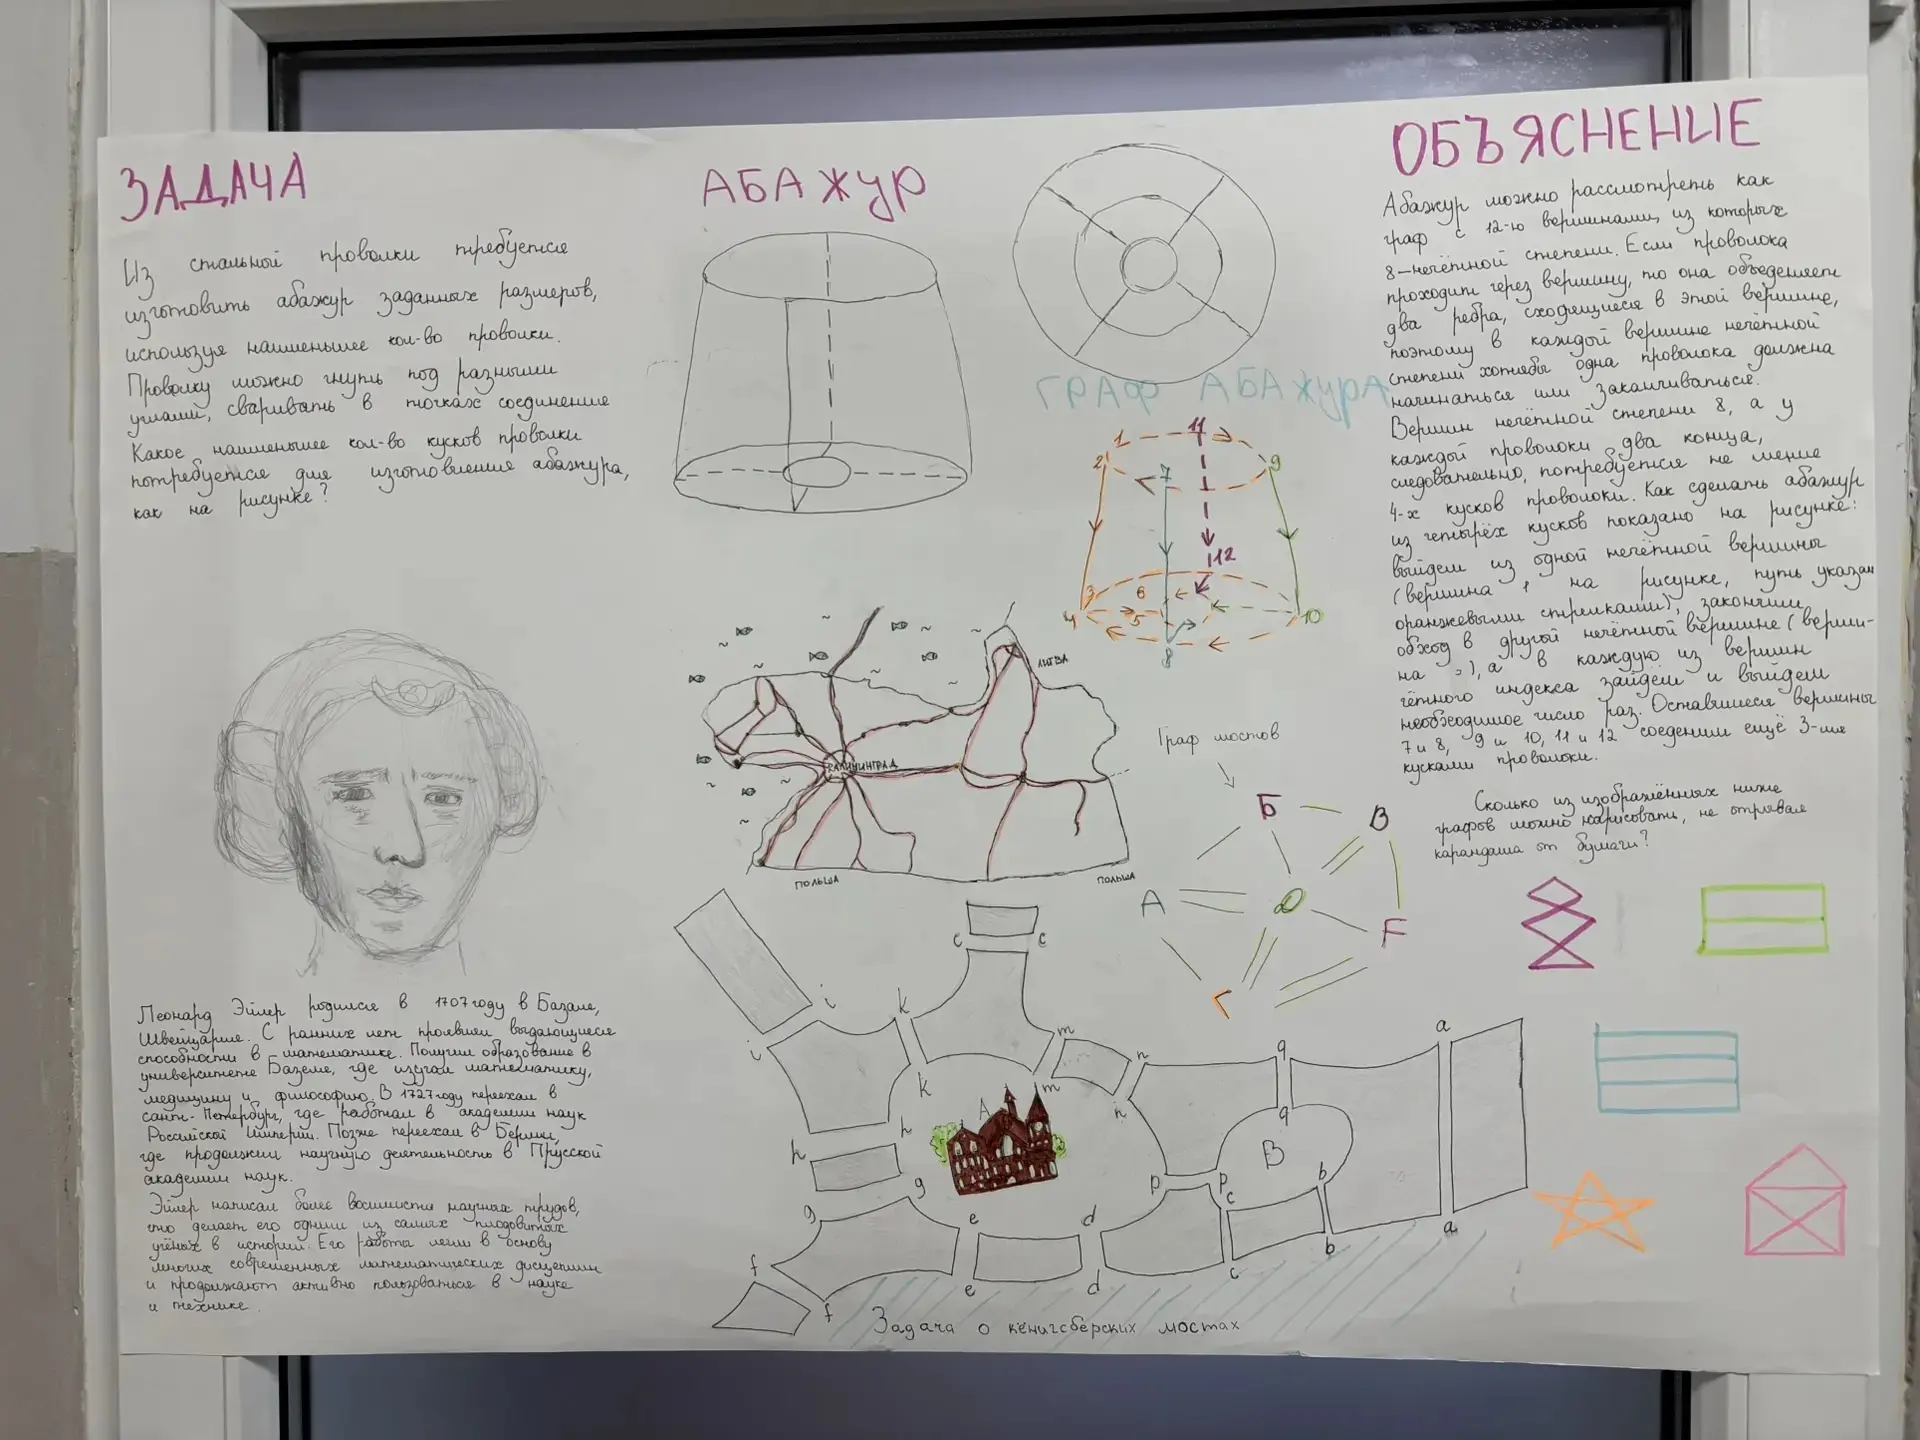 ЗАДАЧА
Из стальной проволки требуется
изготовить абажур заданных размеров,
используя наименьшее кол-во проволки.
Проволку можно гнуть под разными
углами, сваривать в точках соединения
Какое наименьшее кол-во кусков проволки
потребуется для изготовления абажура,
как на рисунке?
Леонард Эйлер родился в 1707 году в Базеле,
Швейцария. С ранних лет проявлял выдающиеся
способности в математике. Получил образование в
университете Базеля, где изучал математику,
медицину и философию. В 1727 году переехал в
санкт-Петербург, где работал в академии наук
Российской Империи. Позже переехал в Берлин,
где продолжил научную деятельность в Прусской
академии наук.
Эйлер написал более восьмиста научных трудов,
что делает его одним из самых плодовитых
учёных в истории. Его работы легли в основу
многих современных математических дисциплин
и продолжают активно пользоваться в науке
и технике.
АБАЖУР
ГРАФ АБАЖУРА
1
11
2
7
9
12
3
6
4
5
10
8
ЛИТВА
КАЛИНИНГРАД
ПОЛЬША
ПОЛЬША
Граф мостов
Б
В
А
D
F
Г
c c
i k
m
i
k
m
n
n
q
q
a
A
h
h
B
g
p p
b
c
g
e
d
a
f
b
c
e
d
f
Задача о кёнигсберских мостах
ОБЪЯСНЕНИЕ
Абажур можно рассмотреть как
граф с 12-ю вершинами, из которых
8-нечётной степени. Если проволока
проходит через вершину, то она объеденяет
два ребра, сходящиеся в этой вершине,
поэтому в каждой вершине нечётной
степени хотябы одна проволока должна
начинаться или заканчиваться.
Вершин нечётной степени 8, а у
каждой проволоки два конца,
следовательно, потребуется не менее
4-х кусков проволоки. Как сделать абажур
из четырёх кусков показано на рисунке:
выйдем из одной нечётной вершины
(вершина 1 на рисунке, путь указан
оранжевыми стрелками), закончим
обход в другой нечётной вершине (верши-
на ), а в каждую из вершин
чётного индекса зайдём и выйдем
необходимое число раз. Оставшиеся вершины
7 и 8, 9 и 10, 11 и 12 соеденим ещё 3-мя
кусками проволоки.
Сколько из изображённых ниже
графов можно нарисовать, не отрывая
карандаша от бумаги?